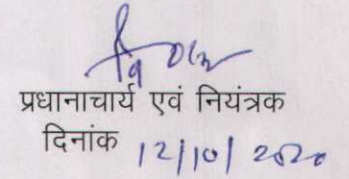 प्रधानाचार्य एवं नियंत्रक
दिनांक 12/10/2020